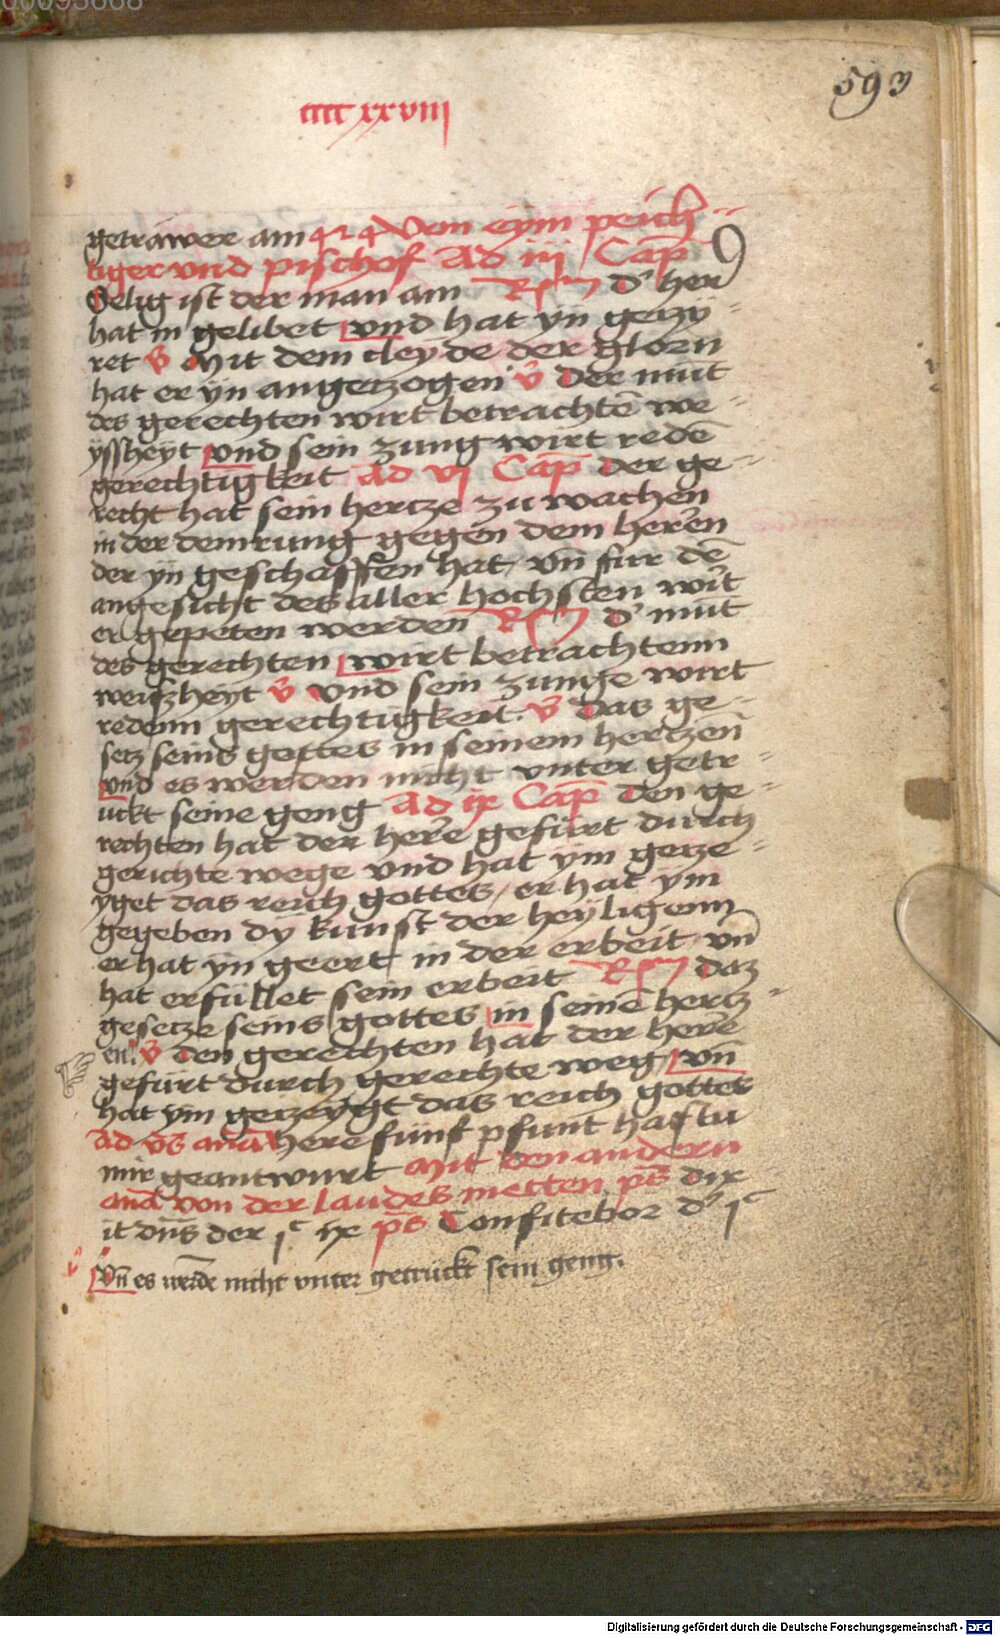 00093668
593
cccc xxviii
getrawer am 424 Vom eym peich-
tiger vnd pischof Ad iij Cap
Selig ist der man am Rm d' her
hat in gelibet vnd hat yn gezy-
ret v̄ Mit dem cleyde der glorn
hat er yn angetzogen v̄ Der mut
des gerechten wirt betrachtē we-
yssheyt vnd sein zung wirt redē
gerechtigkeit Ad vj Cap Der ge-
recht hat sein hertze zu wachen
in der demrung gegen dem heren
der yn geschaffen hat vn̄ fur dē
angesicht des aller hochsten wirt
er gepeten werden Rm d' mut
des gerechten wirt betrachtenn
weiszheyt v̄ Vnd sein zunge wirt
redenn gerechtigkeit. v̄ Das ge-
setz seins gottes in seinem hertzen
vnd es werden nicht vnter getr-
uckt seine geng Ad ix Cap Den ge-
rechten hat der here gefurt durch
gerichte wege vnd hat ym geze-
yget das reich gottes / er hat ym
gegeben dy kunst der heyligenn
er hat yn geert in der erbeit vn̄
hat erfullet sein erbeit Rm Daz
gesetze seins gottes in seinē hertz-
en. v̄ Den gerechten hat der here
gefurt durch gerechte weg vn̄
hat ym gezeygt das reich gottes
Ad vs̄ an̄a Here funf pfunt hastu
mir geantwurt Mit den andern
an̄a von der laudes metten ps̄ Dix
it dn̄s der jc ix ps̄ Confitebor d' jc
v̄ Vn̄ es werde nicht vnter getruckt sein geng.
Digitalisierung gefördert durch die Deutsche Forschungsgemeinschaft - DFG